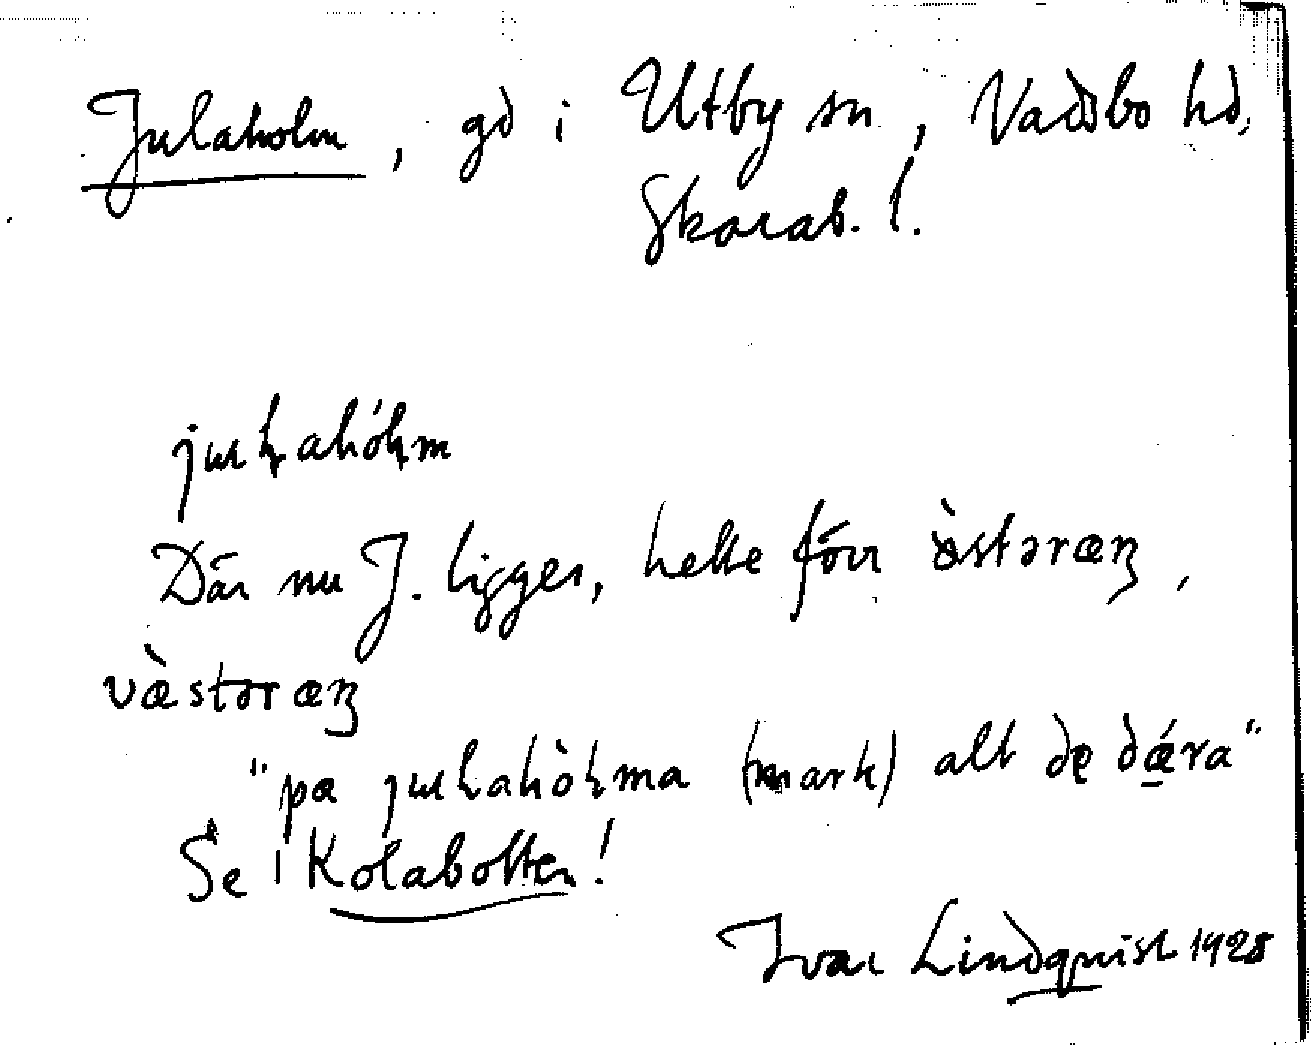 Julaholm, gd i Utby sn, Vadsbo hd,
Skarab. l.
juɽahóɽm
Där nu J. ligger, hette förr ö̀stəræŋ,
væ̀stəræŋ
"pa juɽahòɽma (mark) allt dę dǽra"
Se i Kolabotten!
Ivar Lindquist 1928